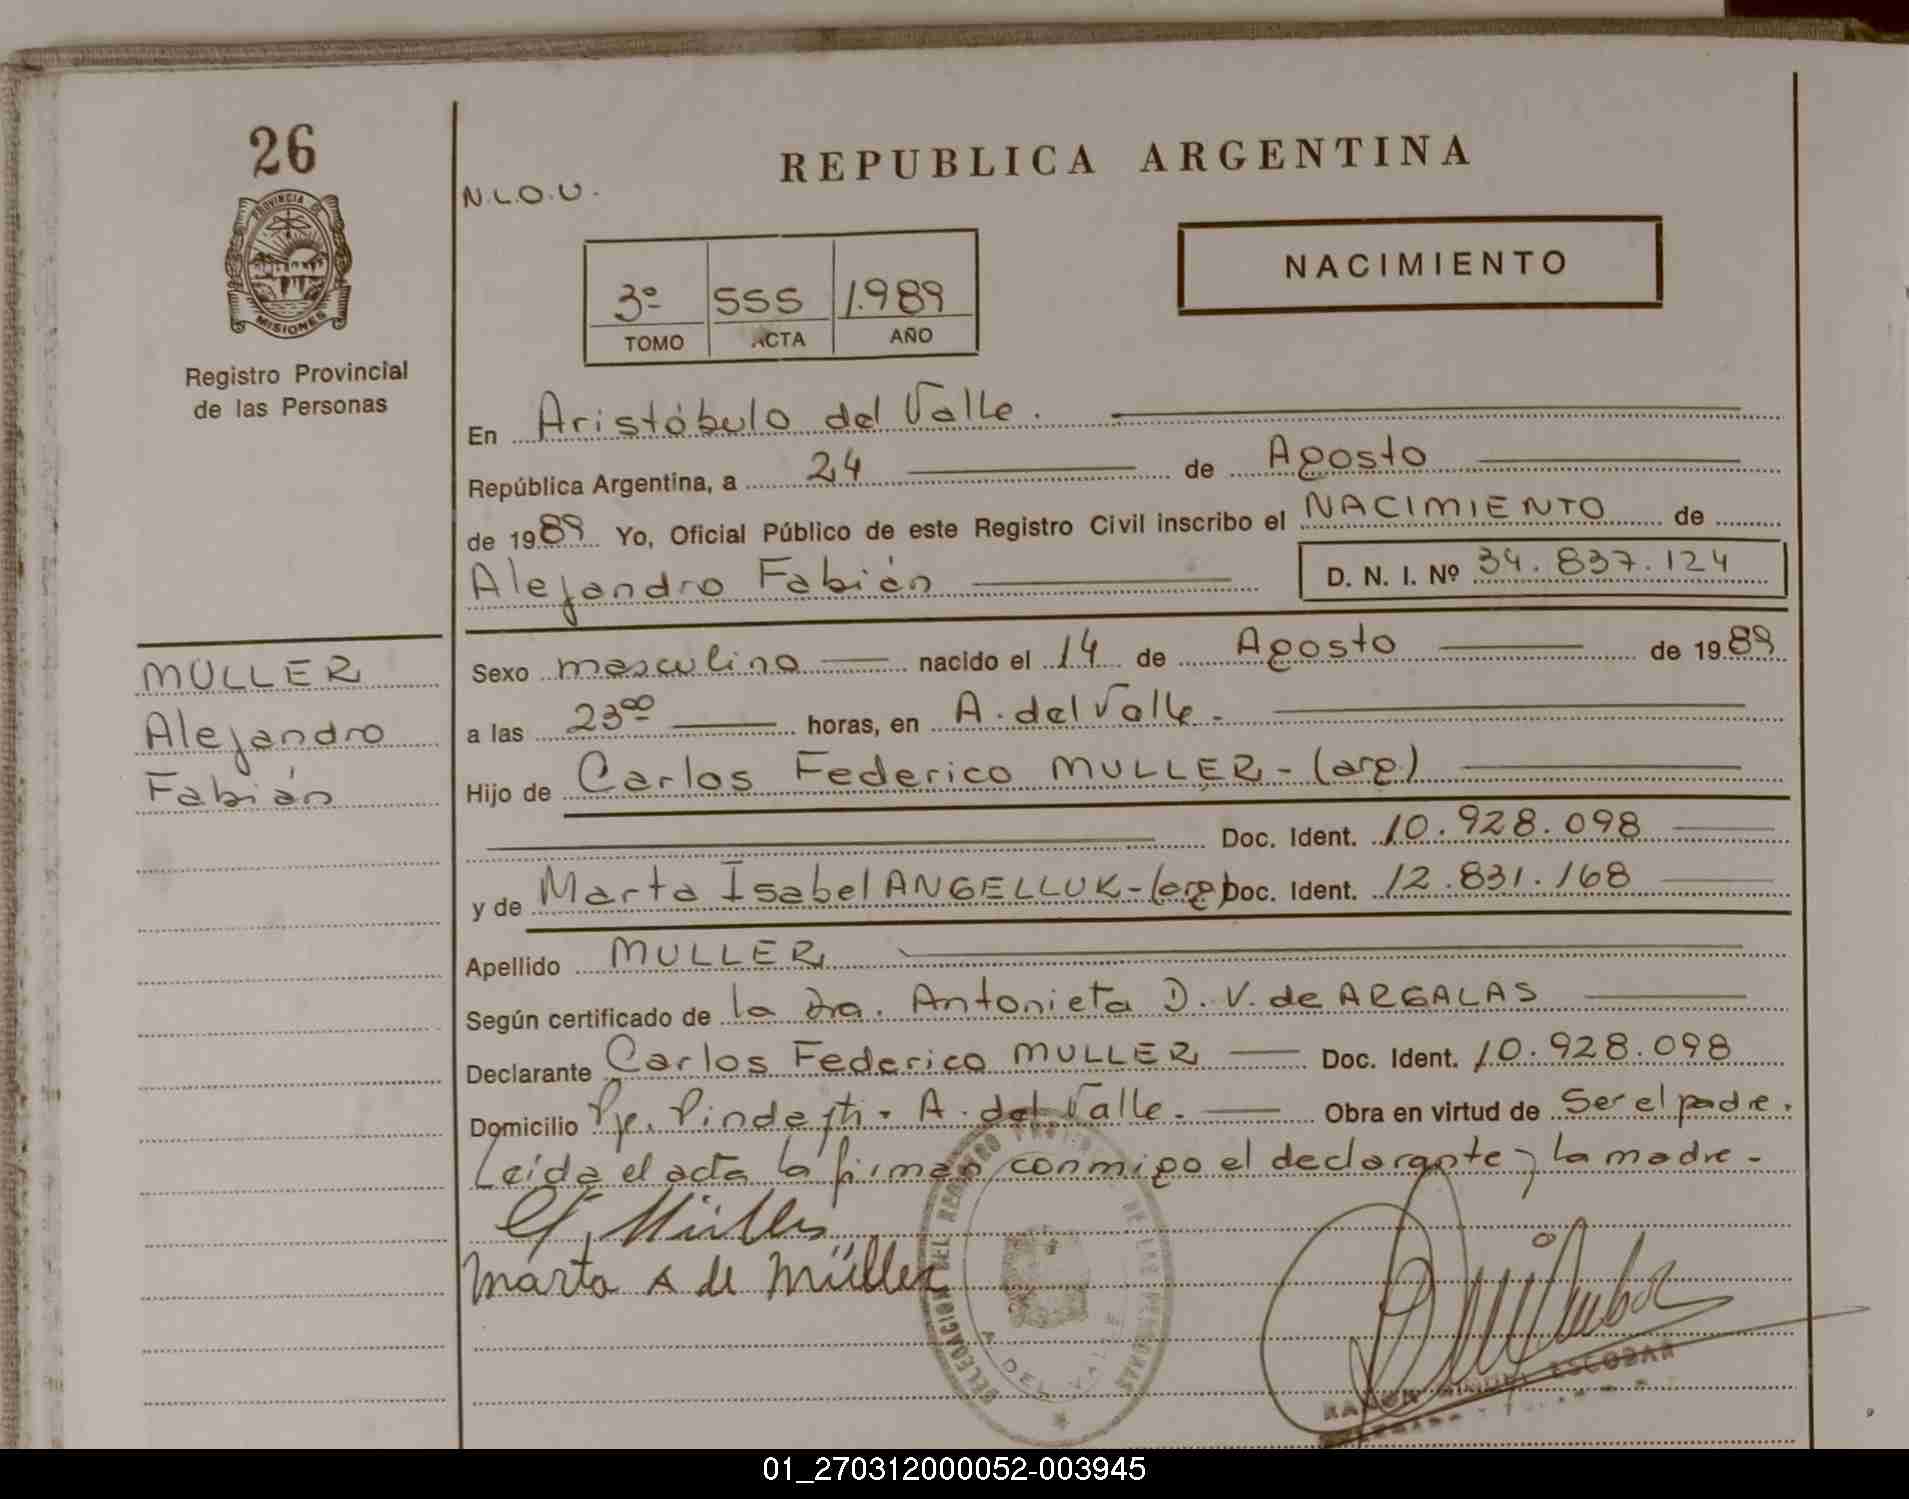 26
PROVINCIA DE
MISIONES
Registro Provincial
de las Personas
MULLER
Alejandro
Fabián
N.L.O.U.
REPUBLICA ARGENTINA
NACIMIENTO
3º 555 1.989
TOMO ACTA AÑO
En Aristóbulo del Valle.
República Argentina, a 24 de Agosto
de 1989 Yo, Oficial Público de este Registro Civil inscribo el NACIMIENTO de
Alejandro Fabián D. N. I. Nº 34.837.124
Sexo masculino nacido el 14 de Agosto de 1989
a las 23 00 horas, en A. del Valle.
Hijo de Carlos Federico MULLER - (arg)
Doc. Ident. 10.928.098
y de Marta Isabel ANGELLUK - (arg) Doc. Ident. 12.831.168
Apellido MULLER
Según certificado de la Dra. Antonieta D. V. de ARGALAS
Declarante Carlos Federico MULLER Doc. Ident. 10.928.098
Domicilio A. del Valle. Obra en virtud de Ser el padre.
Leida el acta la firman conmigo el declarante y la madre -
Müller
Marta A de Müller
DELEGACION DEL REGISTRO DE LAS PERSONAS
A. DEL VALLE
ESCOBAR
01_270312000052-003945